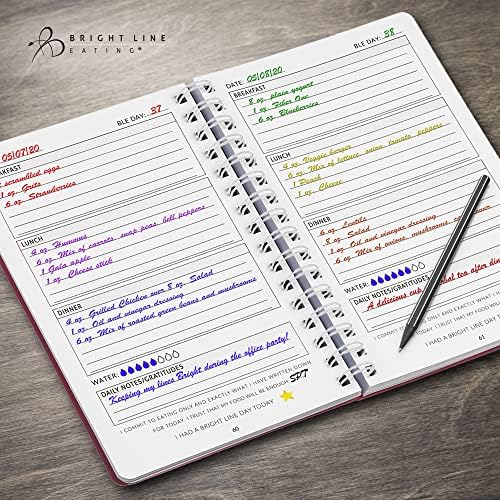 BRIGHT LINE
EATING®
BLE DAY: 37
05/07/20
KFAST
scrambled eggs
1 oz. Grits
6 oz. Strawberries
LUNCH
4 oz. Hummus
6 oz. Mix of carrots, snap peas, bell peppers
1 Gala apple
1 oz. Cheese stick
DINNER
4 oz. Grilled Chicken over 8 oz. Salad
1 oz. Oil and vinegar dressing
6 oz. Mix of roasted green beans and mushrooms
WATER:
DAILY NOTES/GRATITUDES
Keeping my lines Bright during the office party!
I COMMIT TO EATING ONLY AND EXACTLY WHAT I HAVE WRITTEN DOWN
FOR TODAY. I TRUST THAT MY FOOD WILL BE ENOUGH.
SPT
I HAD A BRIGHT LINE DAY TODAY
60
BLE DAY: 38
DATE: 05/08/20
BREAKFAST
8 oz. plain yogurt
1 oz. Fiber One
6 oz. Blueberries
LUNCH
4 oz. Veggie burger
6 oz. Mix of lettuce, onion, tomato, peppers
1 Peach
1 oz. Cheese
DINNER
6 oz. Lentils
8 oz. Salad
1 oz. Oil and vinegar dressing
6 oz. Mix of onions, mushrooms,
WATER:
DAILY NOTES/GRATITUDES
A delicious cup herbal tea after din
I COMMIT TO EATING ONLY AND EXACTLY WHAT I HAVE
FOR TODAY. I TRUST THAT MY FOOD
I HAD A BRIGHT LINE DAY
61